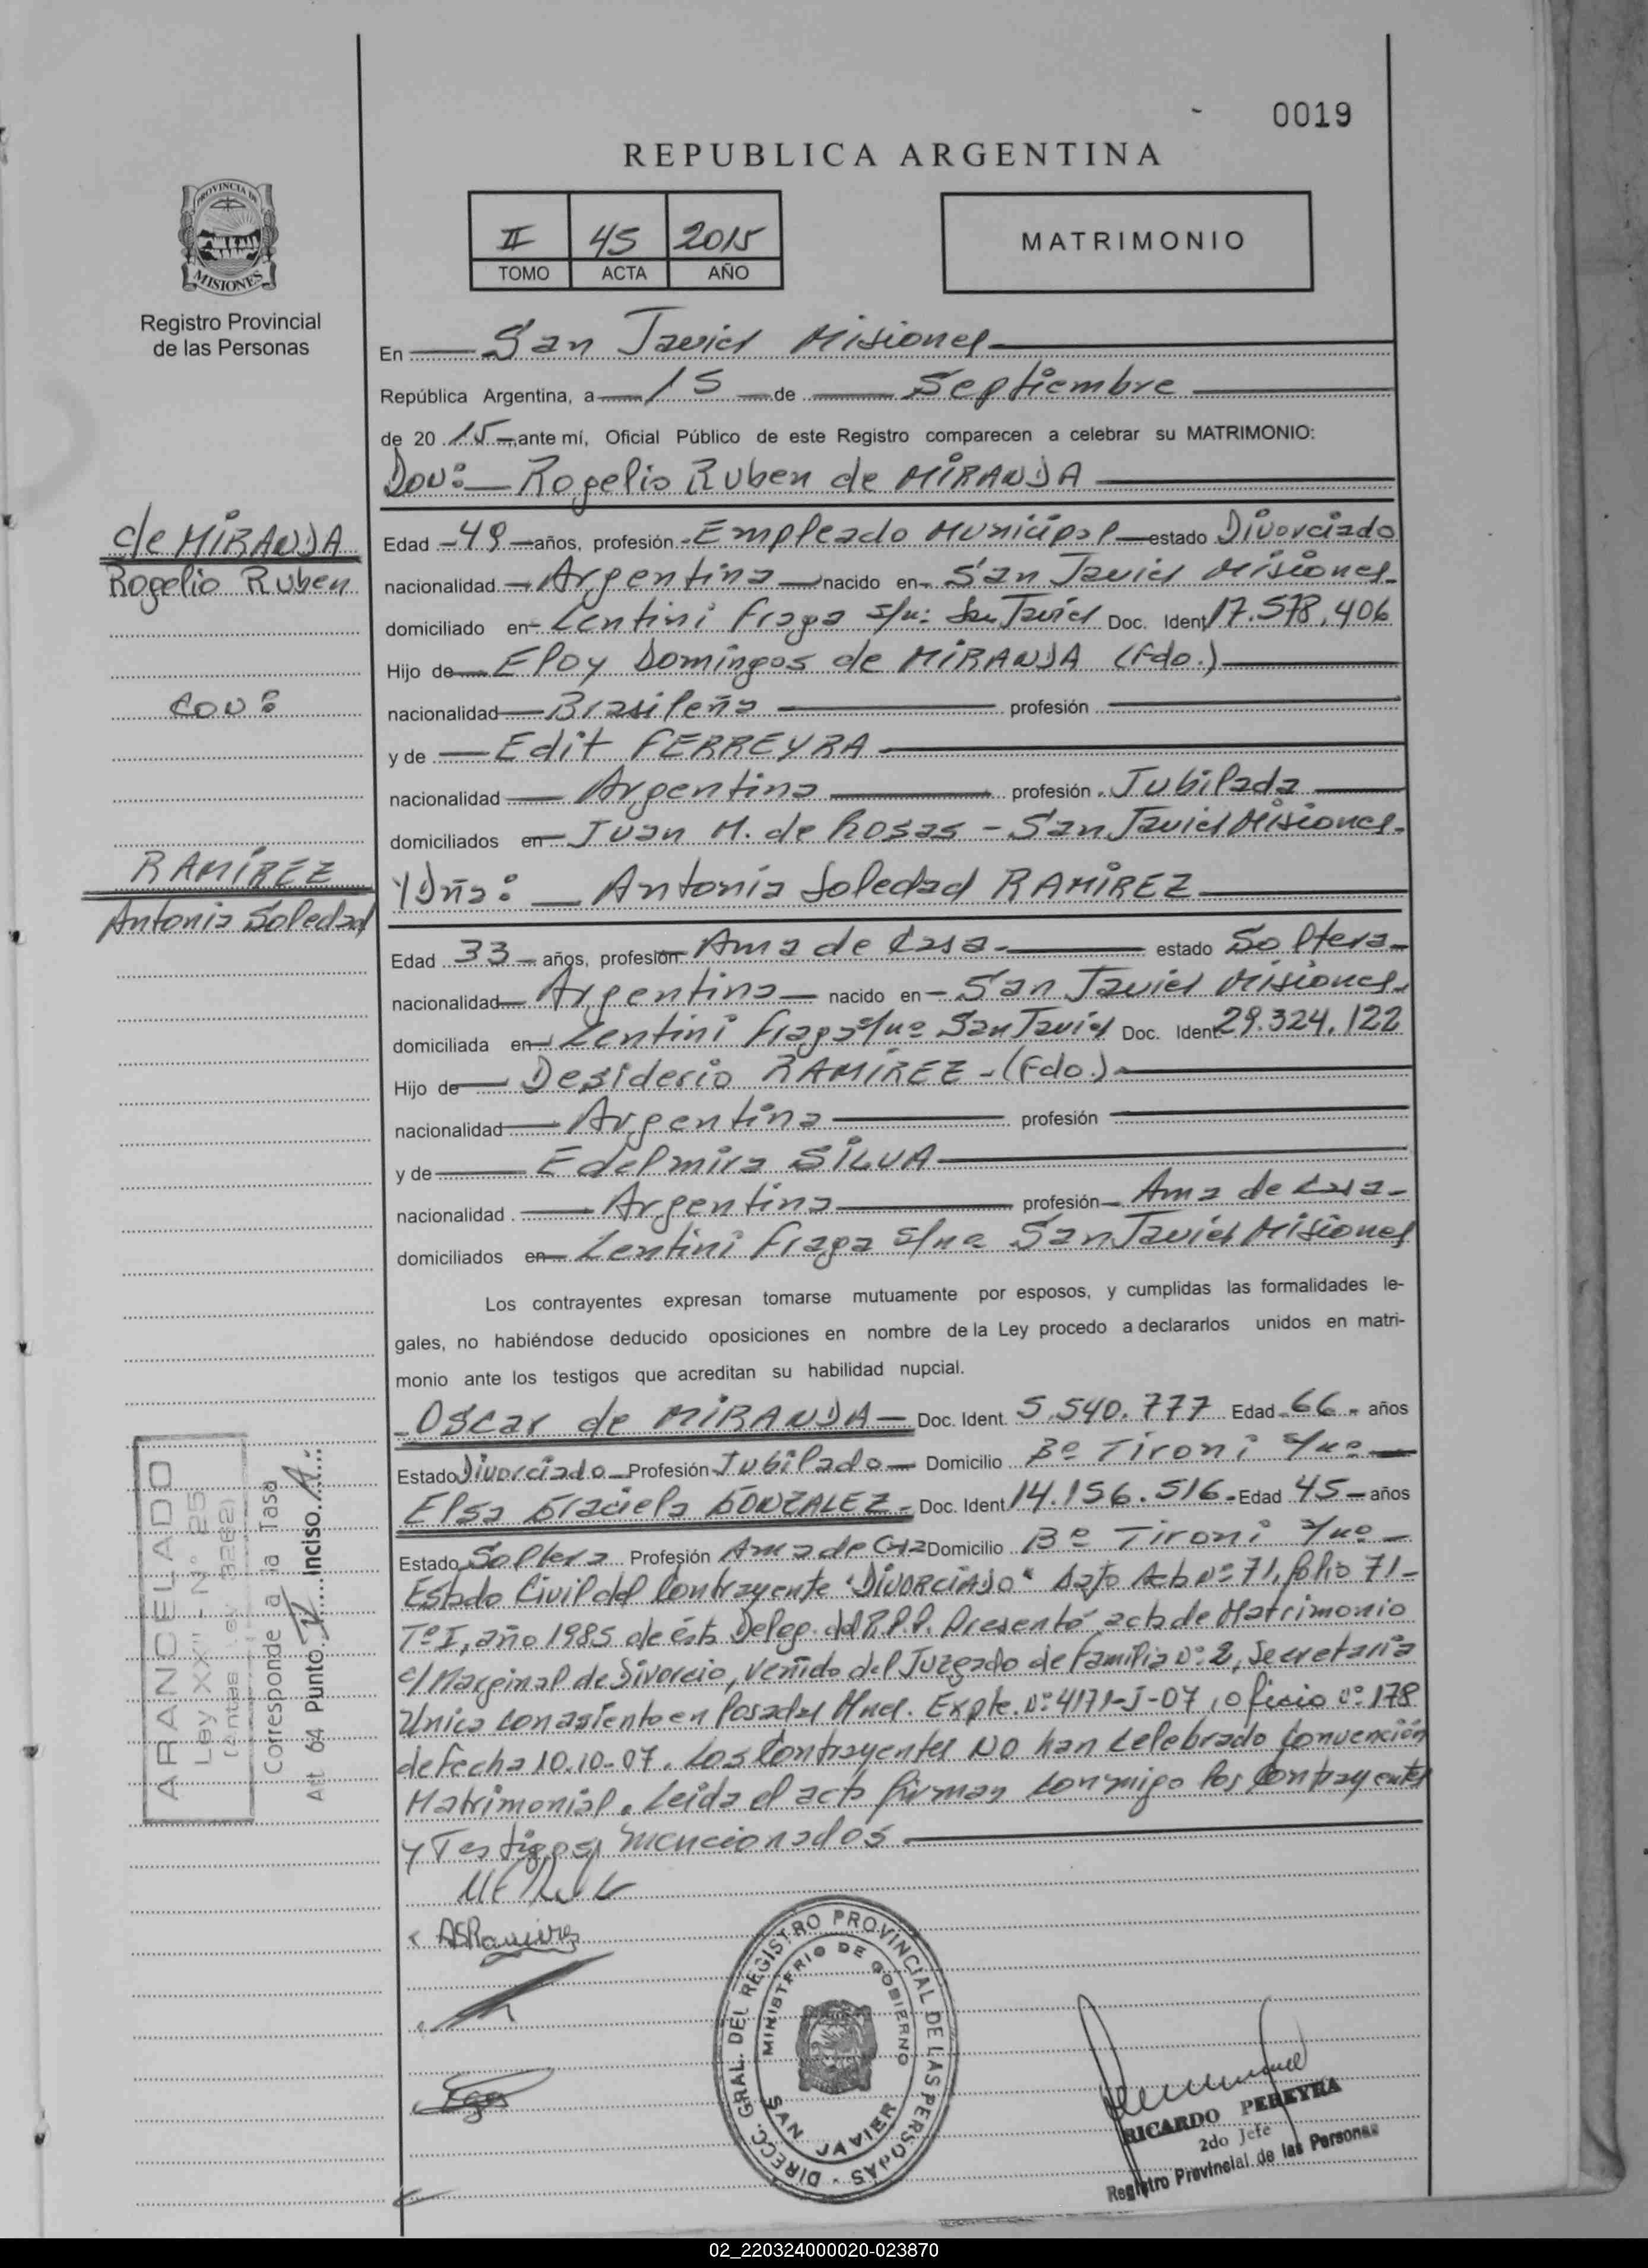 0019
REPUBLICA ARGENTINA
PROVINCIA DE
MISIONES
Registro Provincial
de las Personas
II 45 2015
TOMO ACTA AÑO
MATRIMONIO
En San Javier Misiones
República Argentina, a 15 de Septiembre
de 20 15 ante mí, Oficial Público de este Registro comparecen a celebrar su MATRIMONIO:
Don: Rogelio Ruben de MIRANDA
de MIRANDA
Rogelio Ruben
con:
RAMÍREZ
Antonia Soledad
Edad 49 años, profesión Empleado Municipal estado Divorciado
nacionalidad Argentina nacido en San Javier Misiones
domiciliado en Lentini Fraga s/nº San Javier Doc. Ident 17.578.406
Hijo de Eloy Domingos de MIRANDA (Fdo.)
nacionalidad Brasileña profesión
y de Edit FERREYRA
nacionalidad Argentina profesión Jubilada
domiciliados en Juan M. de Rosas - San Javier Misiones.
Y Dña: Antonia Soledad RAMÍREZ
Edad 33 años, profesión Ama de Casa. estado Soltera
nacionalidad Argentina nacido en San Javier Misiones
domiciliada en Lentini Fraga s/nº San Javier Doc. Ident 29.324.122
Hijo de Desiderio RAMÍREZ - (Fdo.)
nacionalidad Argentina profesión
y de Edelmira SILVA
nacionalidad Argentina profesión Ama de Casa
domiciliados en Lentini Fraga s/nº San Javier Misiones
Los contrayentes expresan tomarse mutuamente por esposos, y cumplidas las formalidades le-
gales, no habiéndose deducido oposiciones en nombre de la Ley procedo a declararlos unidos en matri-
monio ante los testigos que acreditan su habilidad nupcial.
Oscar de MIRANDA Doc. Ident. 5.540.777 Edad 66 años
Estado Divorciado Profesión Jubilado Domicilio Bº Tironi s/nº
Elsa Graciela GONZALEZ Doc. Ident 14.156.516 Edad 45 años
Estado Soltera Profesión Ama de Casa Domicilio Bº Tironi s/nº
Estado Civil del Contrayente "DIVORCIADO" Acta Nº 71, folio 71-
Tº I, año 1985 de ésta Deleg. del R.P.P. Presentó acta de Matrimonio
c/ Marginal de Divorcio, venido del Juzgado de Familia Nº 2, Secretaría
Unica con asiento en Posadas Mnes. Expte. Nº 4171-J-07, oficio nº 178
de fecha 10.10-07. Los Contrayentes NO han celebrado Convención
Matrimonial. Leída el acta firman conmigo los Contrayentes
y Testigos mencionados
ASRamirez
ARANCELADO
Ley XXII - Nº 25
(Antes Ley 3262)
Corresponde a la Tasa
Art. 64 Punto IV Inciso A
DIRECC. GRAL. DEL REGISTRO PROVINCIAL DE LAS PERSONAS
MINISTERIO DE GOBIERNO
SAN JAVIER
RICARDO PEREYRA
2do Jefe
Registro Provincial de las Personas
02_220324000020-023870